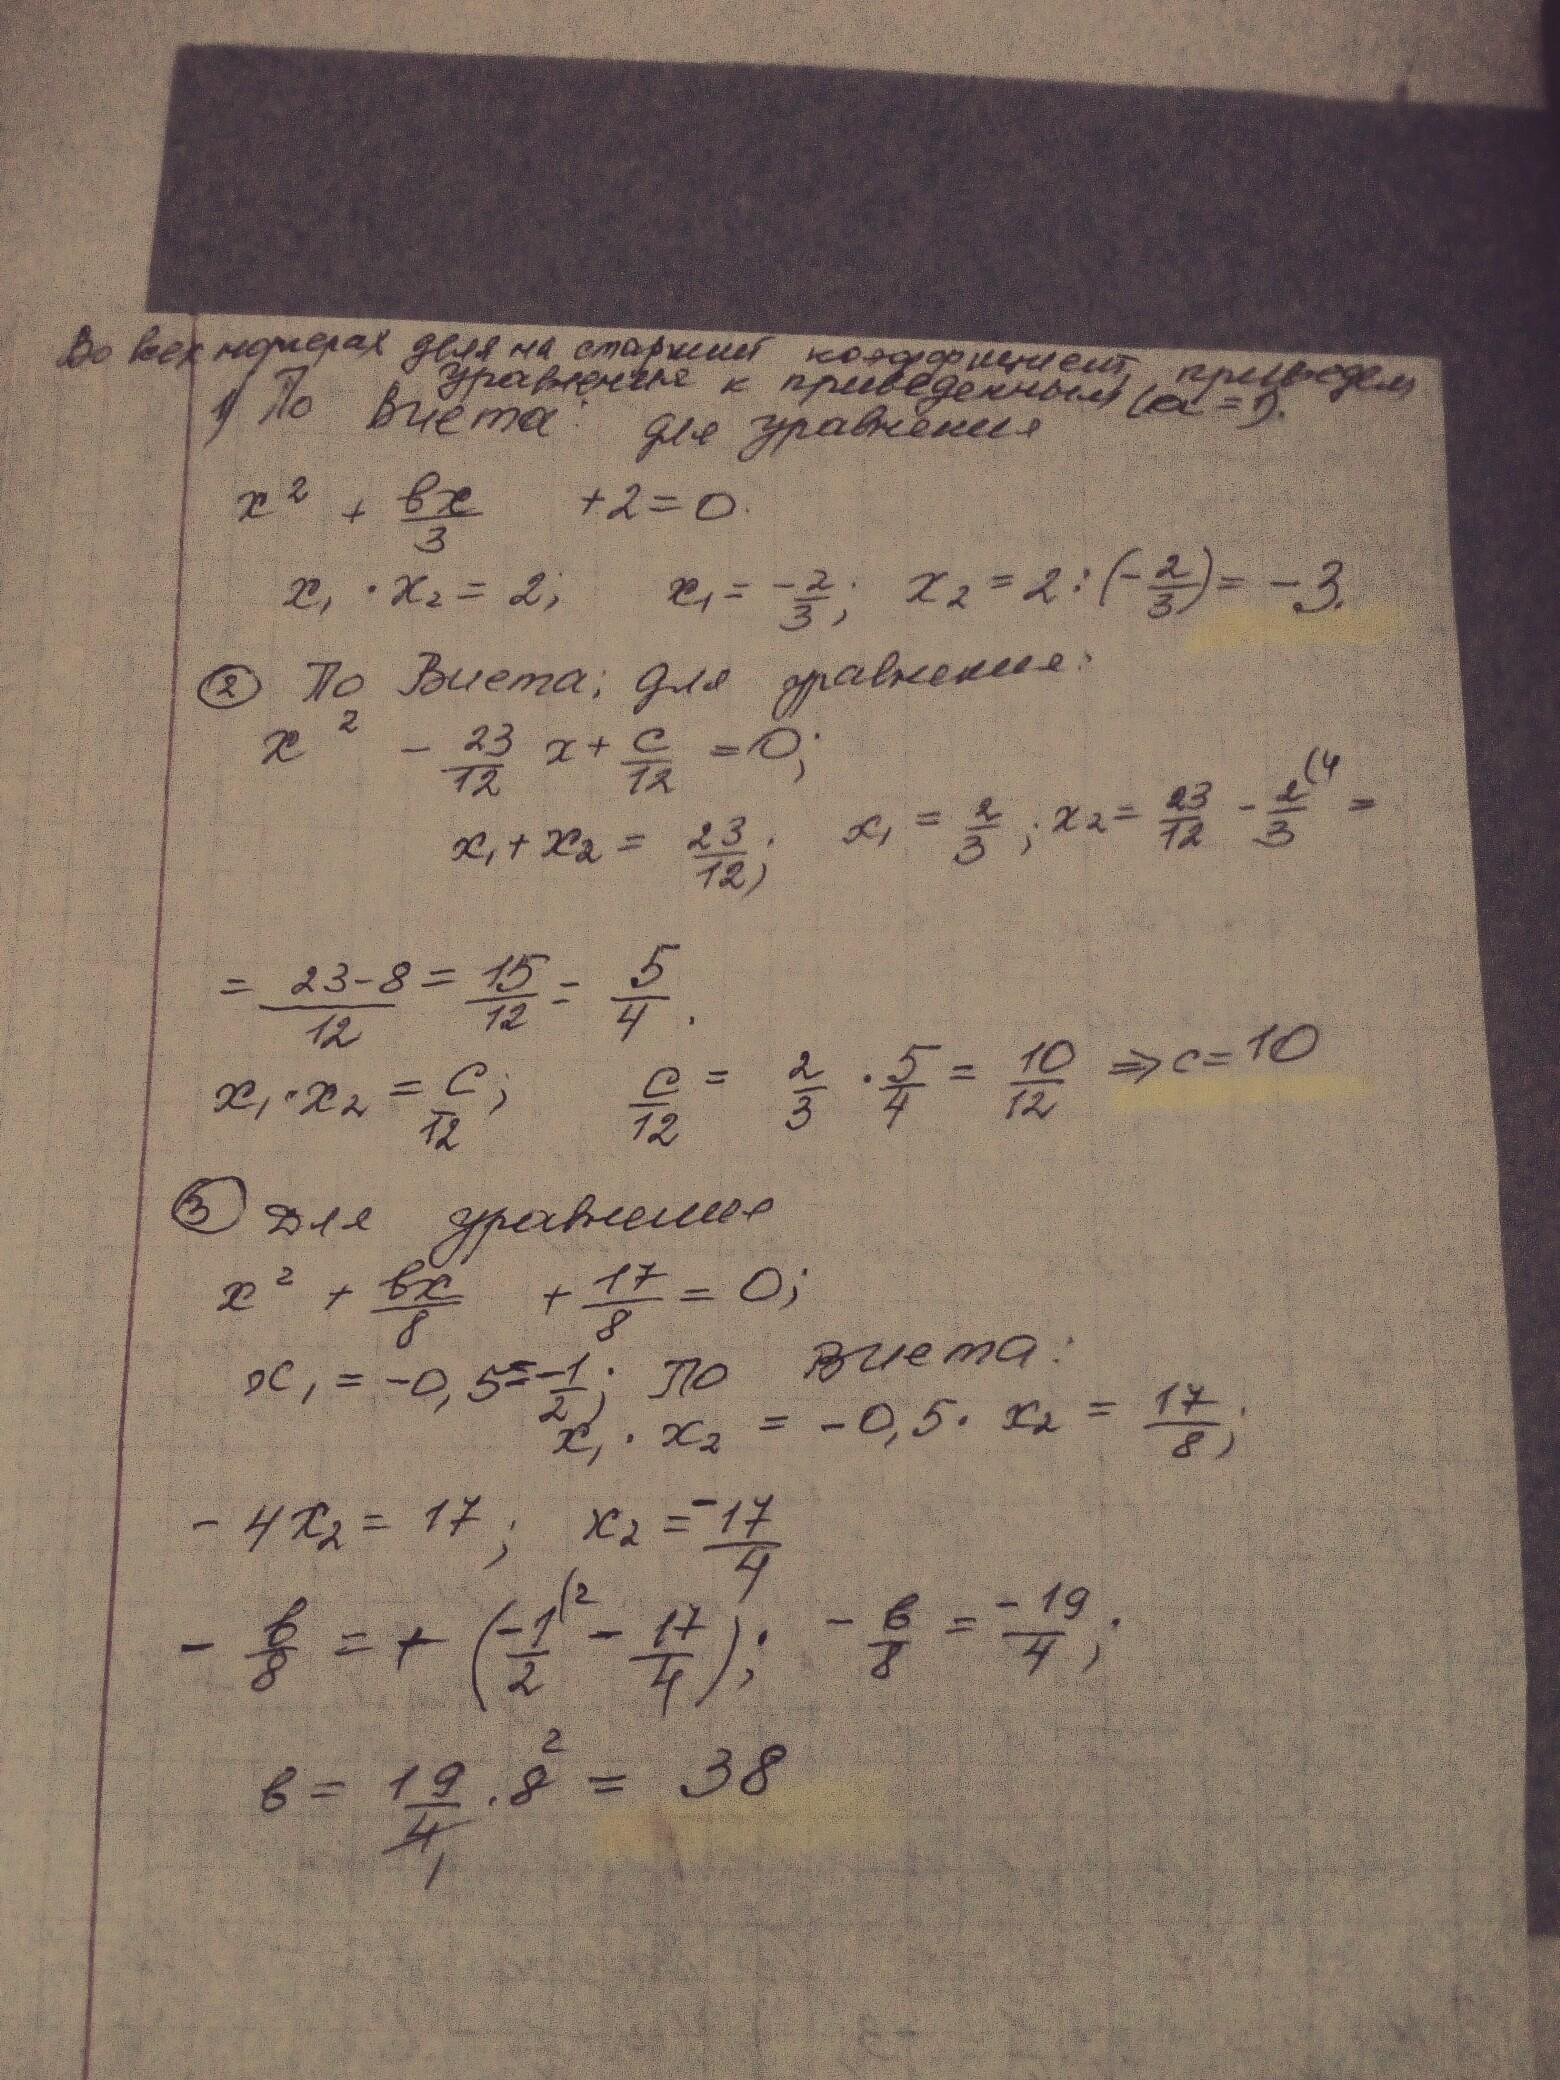 Во всех номерах деля на старший коэффициент, приведем
уравнение к приведенным (a = 1).
1) По Виета: для уравнения
x² + вx/3 + 2 = 0.
x₁ · x₂ = 2; x₁ = -2/3; x₂ = 2 : (-2/3) = -3.
② По Виета; для уравнения:
x² - 23/12 x + c/12 = 0;
x₁ + x₂ = 23/12; x₁ = 2/3; x₂ = 23/12 - 2/3 (4 =
= 23-8/12 = 15/12 = 5/4.
x₁ · x₂ = c/12; c/12 = 2/3 · 5/4 = 10/12 => c = 10
③ Для уравнения
x² + вx/8 + 17/8 = 0;
x₁ = -0,5 = -1/2; По Виета:
x₁ · x₂ = -0,5 · x₂ = 17/8;
-4x₂ = 17; x₂ = -17/4
- в/8 = + (-1/2 (2 - 17/4); - в/8 = -19/4;
в = 19/4 1 · 8 2 = 38